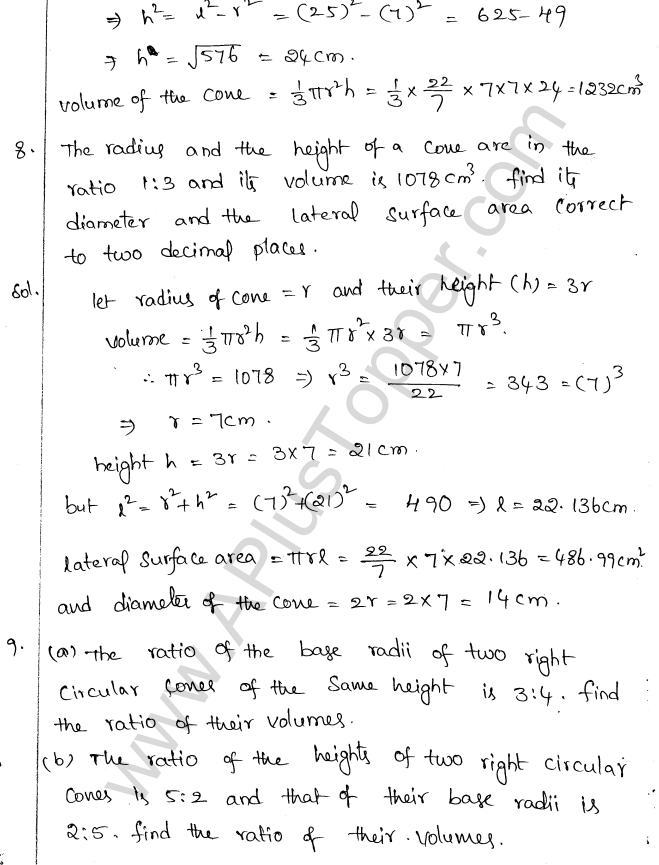 ⇒ h² = l² - r² = (25)² - (7)² = 625 - 49
⇒ h = √576 = 24cm.
volume of the cone = 1/3 πr²h = 1/3 × 22/7 × 7×7×24 = 1232cm³
8. The radius and the height of a cone are in the
ratio 1:3 and its volume is 1078cm³. find its
diameter and the lateral surface area correct
to two decimal places.
Sol. let radius of cone = r and their height (h) = 3r
volume = 1/3 πr²h = 1/3 πr² × 3r = πr³.
∴ πr³ = 1078 ⇒ r³ = 1078×7/22 = 343 = (7)³
⇒ r = 7cm.
height h = 3r = 3×7 = 21cm.
but l² = r²+h² = (7)²+(21)² = 490 ⇒ l = 22.136cm.
lateral surface area = πrl = 22/7 × 7 × 22.136 = 486.99cm²
and diameter of the cone = 2r = 2×7 = 14cm.
9. (a) The ratio of the base radii of two right
circular cones of the same height is 3:4. find
the ratio of their volumes.
(b) The ratio of the heights of two right circular
cones is 5:2 and that of their base radii is
2:5. find the ratio of their volumes.
www.APlusTopper.com